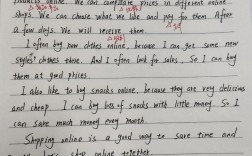 products online. We can compare prices in different online
shops. We can choose what we like and pay for them. After
a few days. We will receive them.
I often buy new clothes online, because I can get some new
styles' clothes there. And I often look for sales. So I can buy
them at good prices.
I also like to buy snacks online, because they are very delicious
and cheap. I can buy lots of snacks with little money. So I
can save much money every month.
Shopping online is a good way to save time and
shop online together.